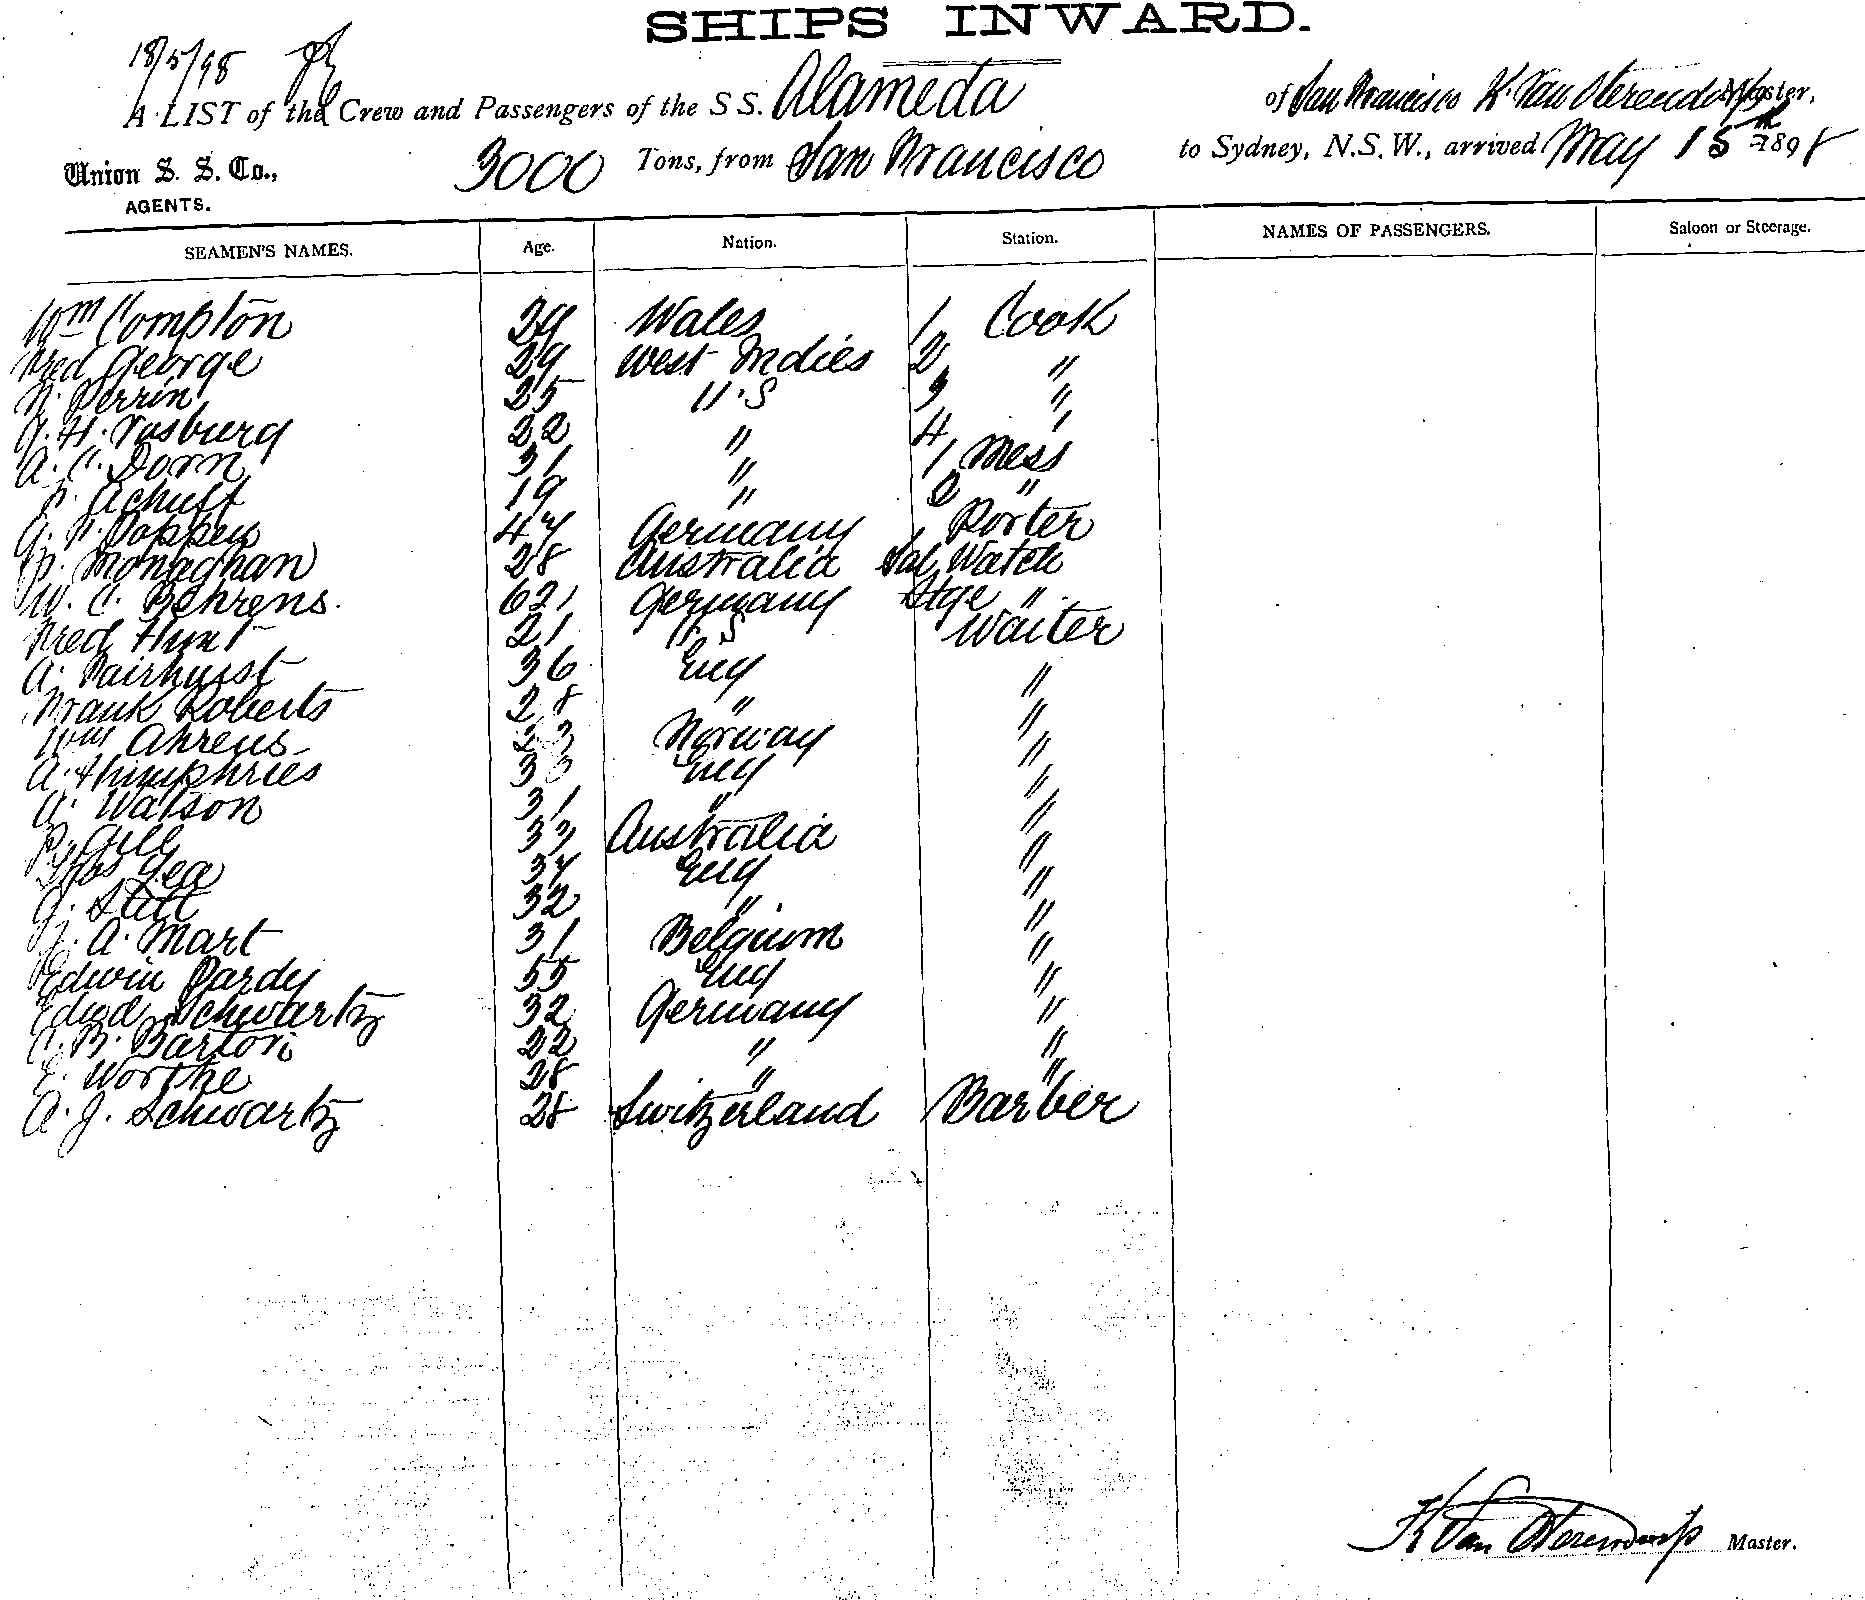 SHIPS INWARD.
18/5/98
A LIST of the Crew and Passengers of the S S. Alameda of San Francisco H. Van Oterendorp Master,
Union S. S. Co., 3000 Tons, from San Francisco to Sydney, N.S.W., arrived May 15th 1898
AGENTS.
SEAMEN'S NAMES. Age. Nation. Station. NAMES OF PASSENGERS. Saloon or Steerage.
Wm Compton 29 Wales 1 Cook
Fred George 29 West Indies 2 "
N. Perrin 25 U.S 3 "
G. H. Vosburg 22 " 4 "
A. C. Dorn 31 " 1 Mess
Achuff 19 " 2 "
G. P. Poppey 47 Germany Porter
P. Monaghan 28 Australia Sal Watch
W. C. Behrens. 62 Germany Stge "
Fred Hunt 21 U.S Waiter
A. Fairhurst 36 Eng "
Frank Roberts 28 " "
Wm Ahrens 23 Norway "
A. Humphries 33 Eng "
A. Watson 31 " "
P. Gill 33 Australia "
Thos Yea 34 Eng "
G. Still 32 " "
J. A. Mart 31 Belgium "
Edwin Pardy 55 Eng "
Edwd Schwartz 32 Germany "
C. B. Barton 22 " "
E. Worthe 28 " "
A. J. Schwartz 28 Switzerland Barber
H Van Oterendorp Master.